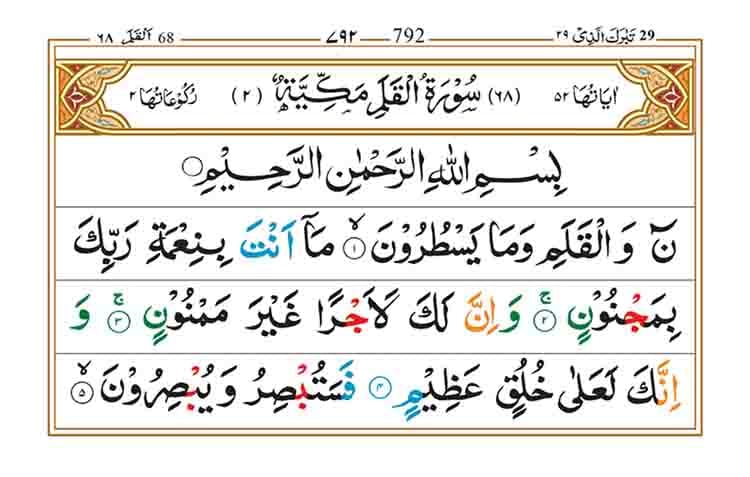 29 تَبٰرَكَ الَّذِىْ ٢٩ 792 ٧٩٢ 68 اَلْقَلَم ٦٨
اٰيَاتُهَا ٥٢ (٦٨) سُوْرَةُ الْقَلَمِ مَكِّيَّةٌ (٢) رُكُوْعَاتُهَا ٢
بِسْمِ اللّٰهِ الرَّحْمٰنِ الرَّحِيْمِ
نٓ وَ الْقَلَمِ وَمَا يَسْطُرُوْنَ ۙ‏ ١ مَاۤ اَنْتَ بِنِعْمَةِ رَبِّكَ
بِمَجْنُوْنٍ ۚ‏ ٢ وَاِنَّ لَكَ لَاَجْرًا غَيْرَ مَمْنُوْنٍ ۚ‏ ٣ وَ
اِنَّكَ لَعَلٰى خُلُقٍ عَظِيْمٍ ٤ فَسَتُبْصِرُ وَيُبْصِرُوْنَ ۙ‏ ٥